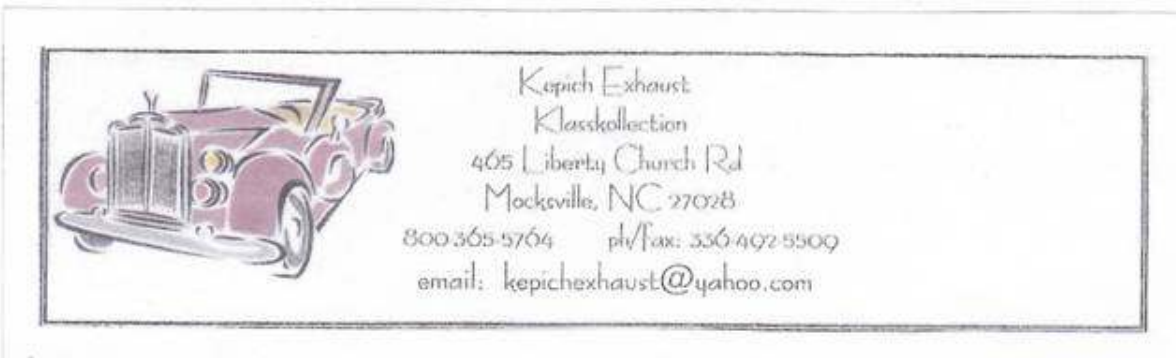 Kepich Exhaust
Klasskollection
465 Liberty Church Rd
Mocksville, NC 27028
800 365-5764 ph/fax: 336-492-5509
email: kepichexhaust@yahoo.com